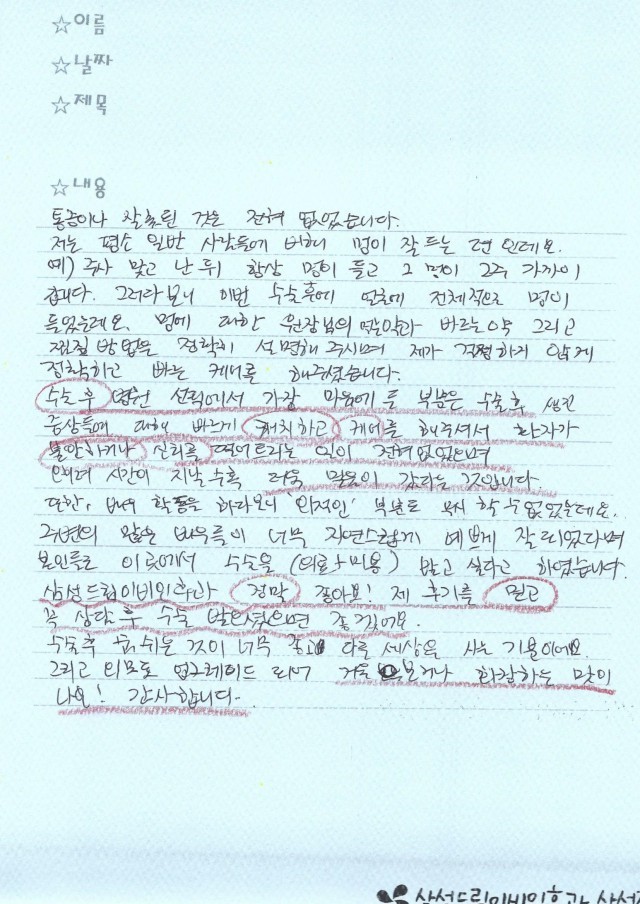 ☆이름
☆날짜
☆제목
☆내용
통증이나 잘못된 것은 전혀 없었습니다.
저는 평소 일반 사람들에 비해 멍이 잘 드는 편 인데요.
예) 주사 맞고 난 뒤 항상 멍이 들고 그 멍이 2주 가까이
갑니다. 그러다보니 이번 수술후에 얼굴에 전체적으로 멍이
들었는데요. 멍에 대한 원장님의 먹는약과 바르는약 그리고
찜질 방법을 정확히 설명해 주시며 제가 걱정하지 않게
정확하고 빠른 케어를 해주셨습니다.
수술 후 병원 선택에서 가장 마음에 든 부분은 수술 후 생긴
증상들에 대해 빠르게 캐치하고 케어를 해주셔서 환자가
불안하거나 신뢰를 떨어트리는 일이 전혀없었으며
오히려 시간이 지날수록 더욱 믿음이 갔다는 것입니다.
또한, 배우 활동을 하다보니 '외적인' 부분도 무시 할 수 없었는데요.
주변의 많은 배우들이 너무 자연스럽게 예쁘게 잘 되었다며
본인들도 이 곳에서 수술을 (의료+미용) 받고 싶다고 하였습니다.
삼성드림이비인후과 정말 좋아요! 제 후기를 믿고
꼭 상담 후 수술 받으셨으면 좋겠어요.
수술후 숨쉬는 것이 너무 좋고 다른 세상을 사는 기분이에요.
그리고 외모도 업그레이드 되어 거울 보거나 화장하는 맛이
나요! 감사합니다~
삼성드림이비인후과 삼성